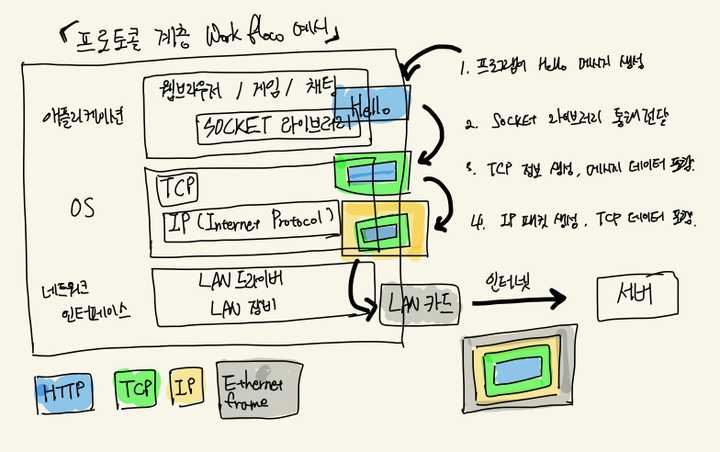 「프로토콜 계층 Work flow 예시」
애플리케이션
웹브라우저 / 게임 / 채팅
SOCKET 라이브러리
Hello
OS
TCP
IP (Internet Protocol)
네트워크
인터페이스
LAN 드라이버
LAN 장비
LAN 카드
인터넷
서버
1. 프로그램이 Hello 메시지 생성
2. Socket 라이브러리 통해 전달
3. TCP 정보 생성, 메시지 데이터 포함.
4. IP 패킷 생성, TCP 데이터 포함.
HTTP
TCP
IP
Ethernet
frame